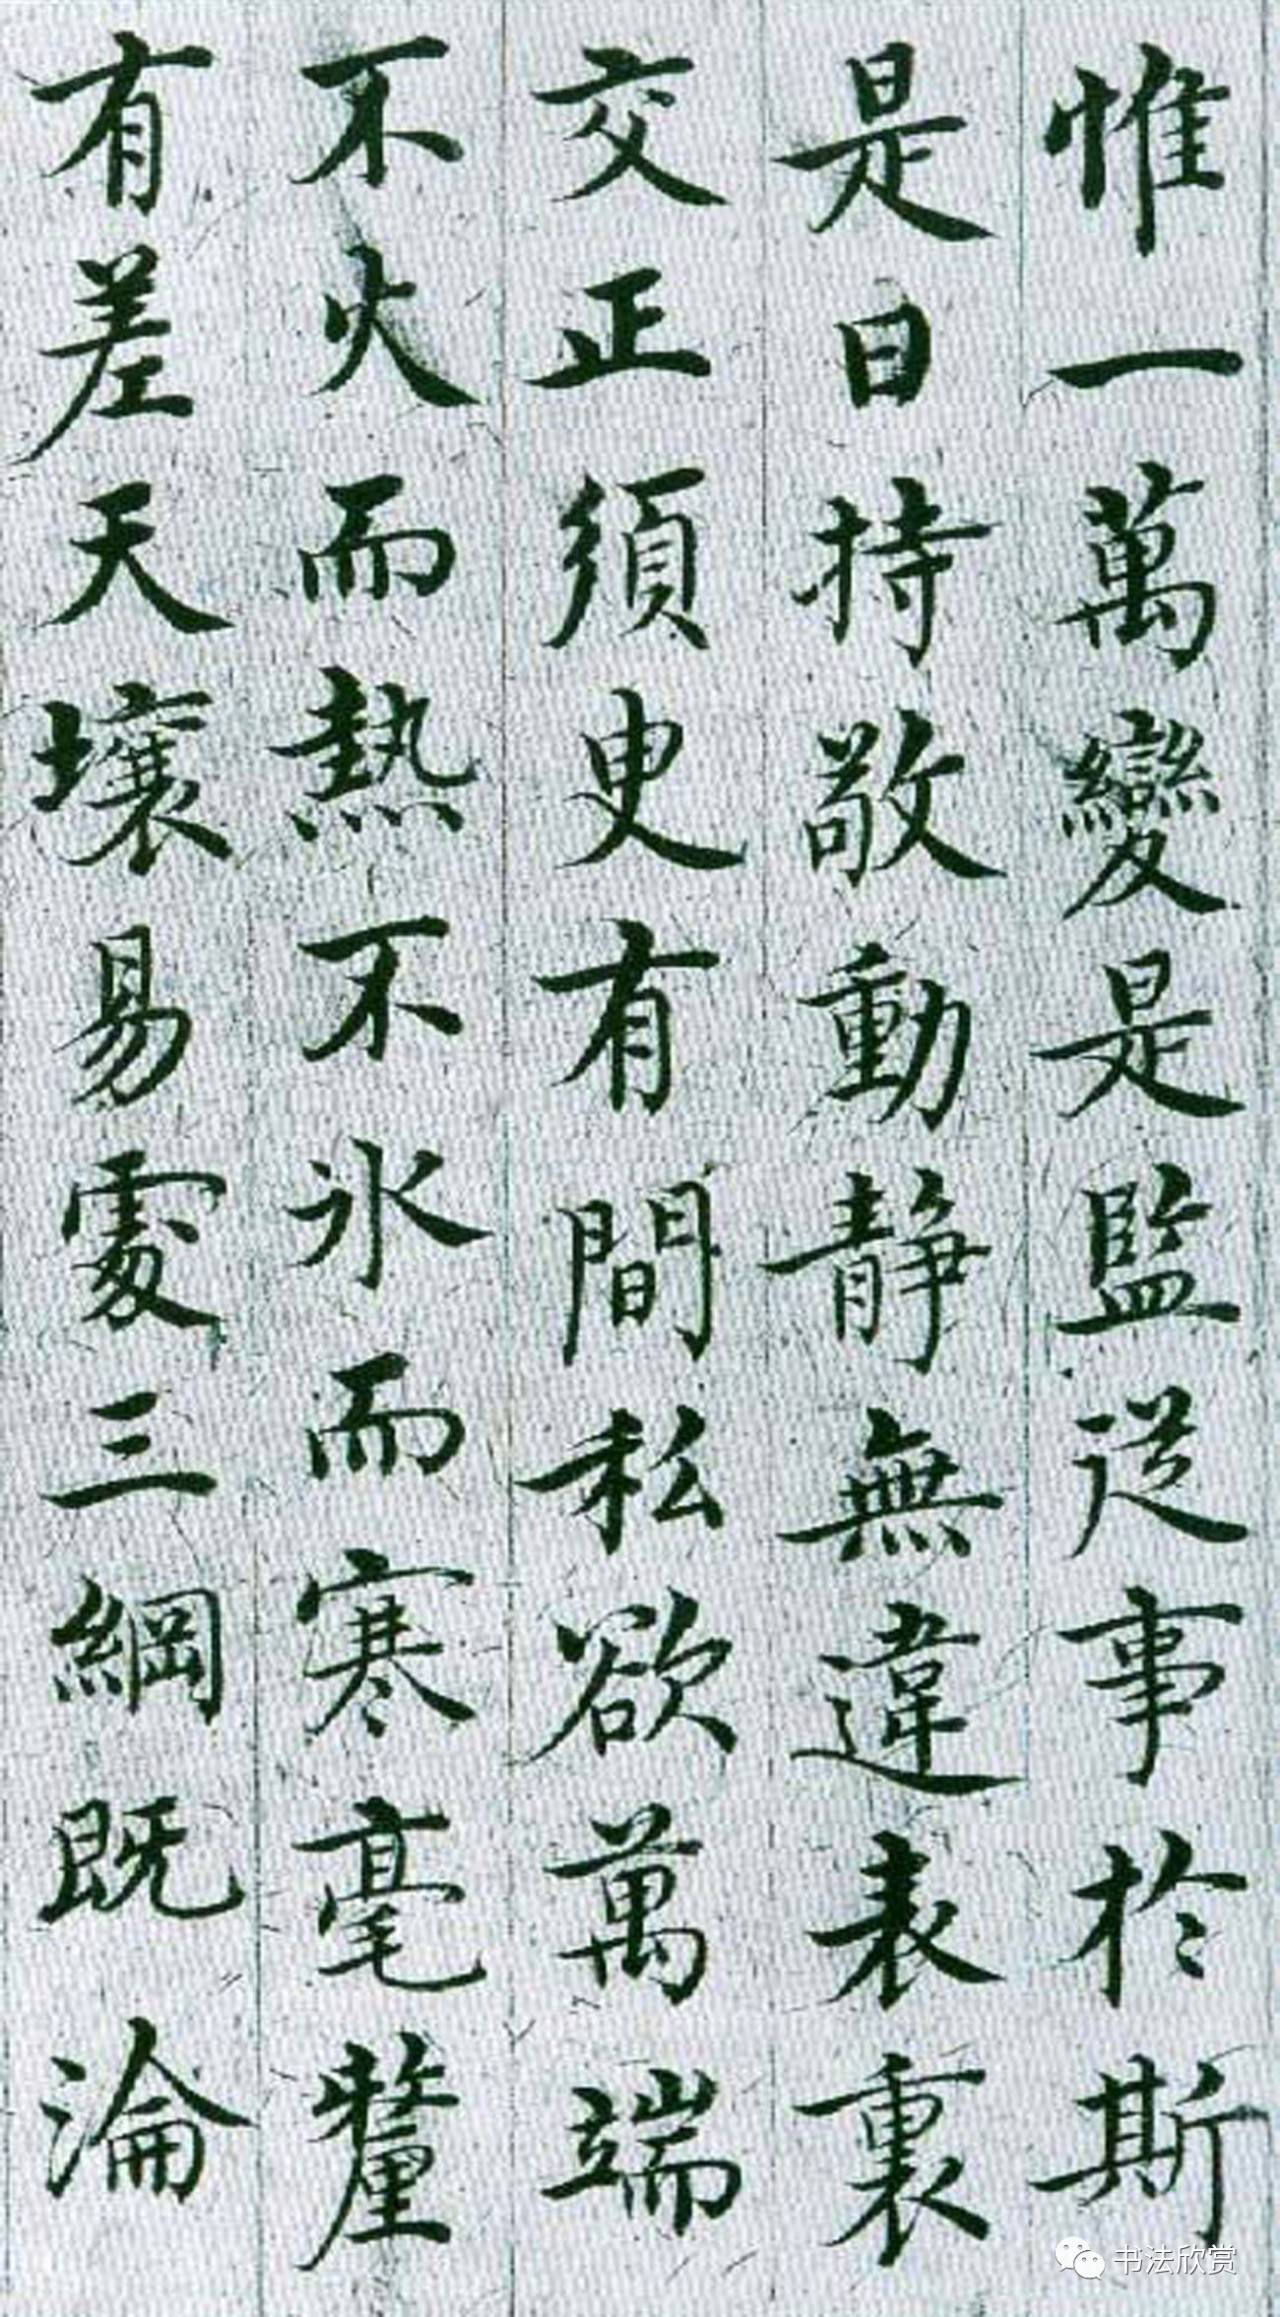 惟一萬變是監從事於斯
是曰持敬動靜無違表裏
交正須臾有間私欲萬端
不火而熱不氷而寒毫釐
有差天壤易處三綱既淪
书法欣赏